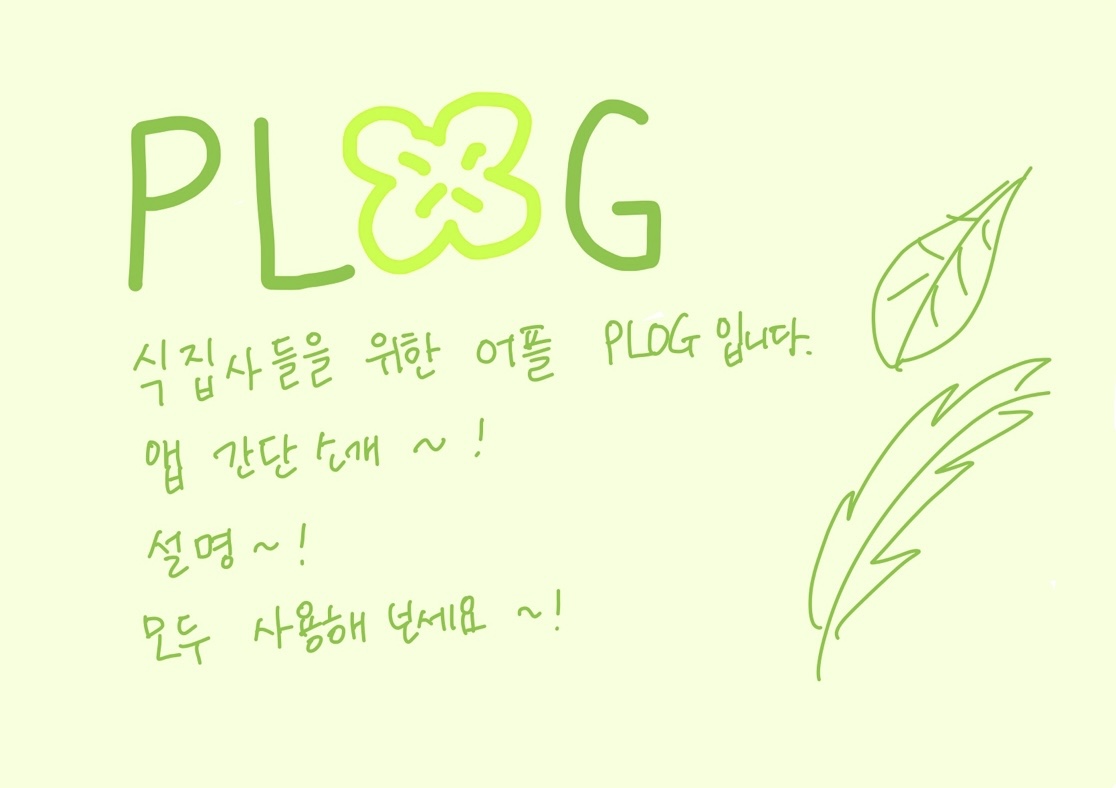 PLOG
식집사들을 위한 어플 PLOG 입니다.
앱 간단 소개 ~ !
설명 ~ !
모두 사용해 보세요 ~!